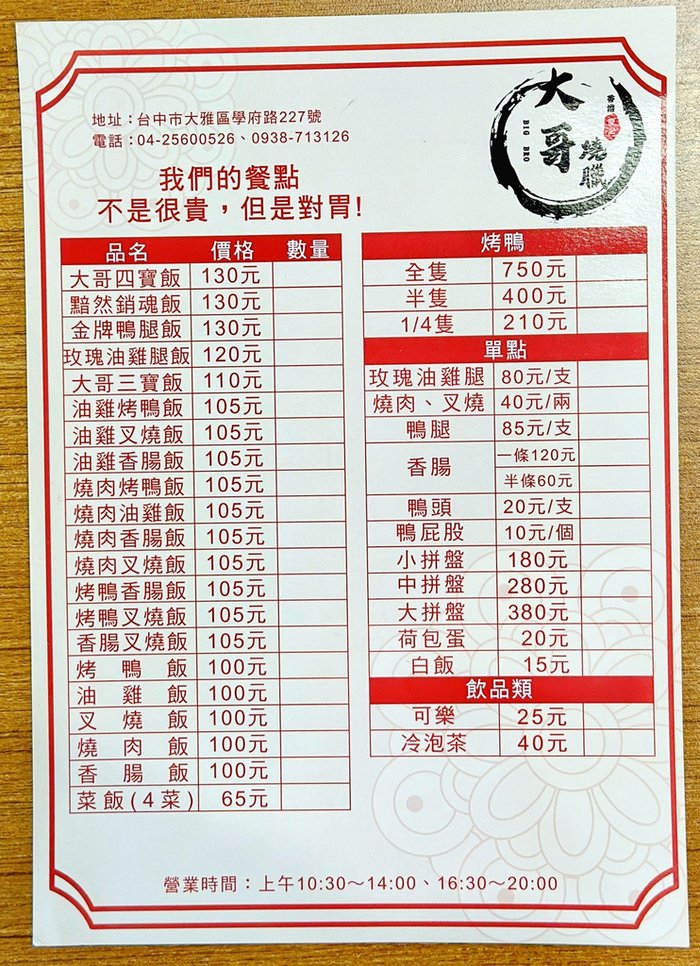 地址：台中市大雅區學府路227號
電話：04-25600526、0938-713126
大哥
燒臘
BIG BRO
我們的餐點
不是很貴，但是對胃!
品名 價格 數量
大哥四寶飯 130元
黯然銷魂飯 130元
金牌鴨腿飯 130元
玫瑰油雞腿飯 120元
大哥三寶飯 110元
油雞烤鴨飯 105元
油雞叉燒飯 105元
油雞香腸飯 105元
燒肉烤鴨飯 105元
燒肉油雞飯 105元
燒肉香腸飯 105元
燒肉叉燒飯 105元
烤鴨香腸飯 105元
烤鴨叉燒飯 105元
香腸叉燒飯 105元
烤鴨飯 100元
油雞飯 100元
叉燒飯 100元
燒肉飯 100元
香腸飯 100元
菜飯(4菜) 65元
烤鴨
全隻 750元
半隻 400元
1/4隻 210元
單點
玫瑰油雞腿 80元/支
燒肉、叉燒 40元/兩
鴨腿 85元/支
香腸 一條120元
半條60元
鴨頭 20元/支
鴨屁股 10元/個
小拼盤 180元
中拼盤 280元
大拼盤 380元
荷包蛋 20元
白飯 15元
飲品類
可樂 25元
冷泡茶 40元
營業時間：上午10:30～14:00、16:30～20:00